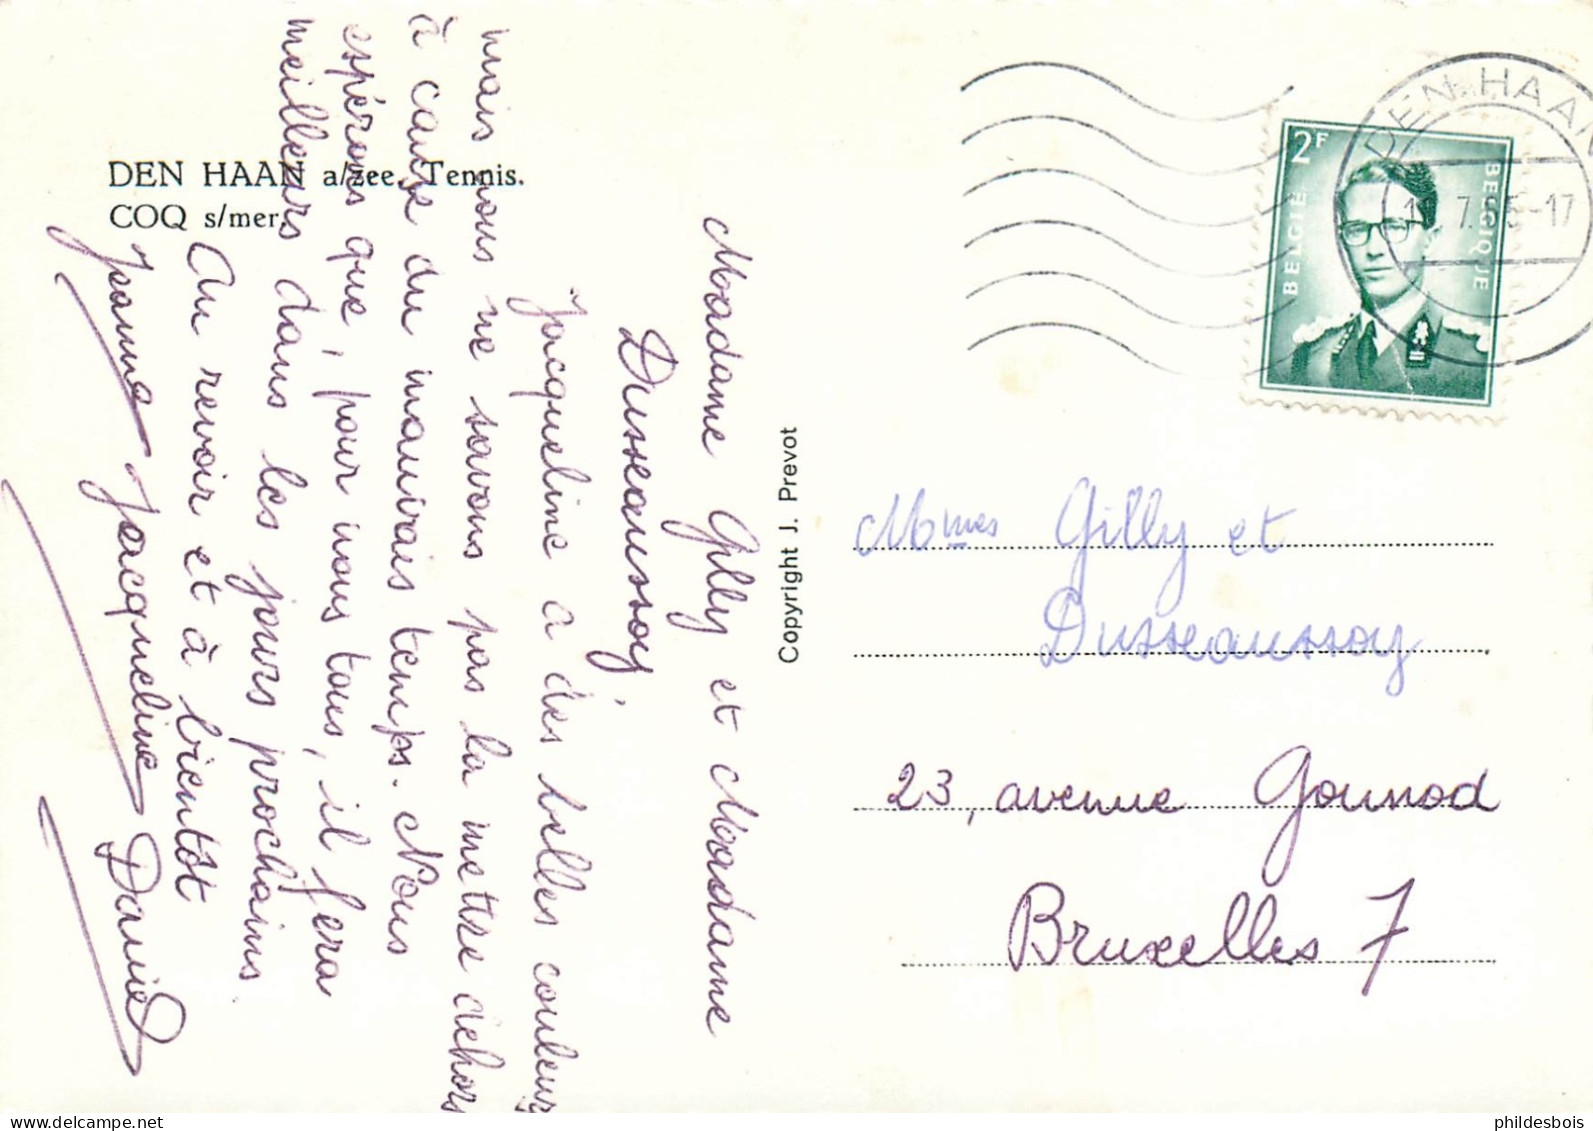 DEN HAAN a/zee, Tennis.
COQ s/mer.
Madame Gilly et Madame
Dusseaussoy,
Jacqueline a des belles couleurs
mais nous ne savons pas la mettre dehors
à cause du mauvais temps. Nous
espérons que, pour nous tous, il fera
meilleurs dans les jours prochains.
Au revoir et à bientôt
Jeanne Jacqueline Daniel
Copyright J. Prevot
DEN HAAN
7
5-17
2F
BELGIE
BELGIQUE
Mmes Gilly et
Dusseaussoy
23, avenue Gounod
Bruxelles 7
phildesbois